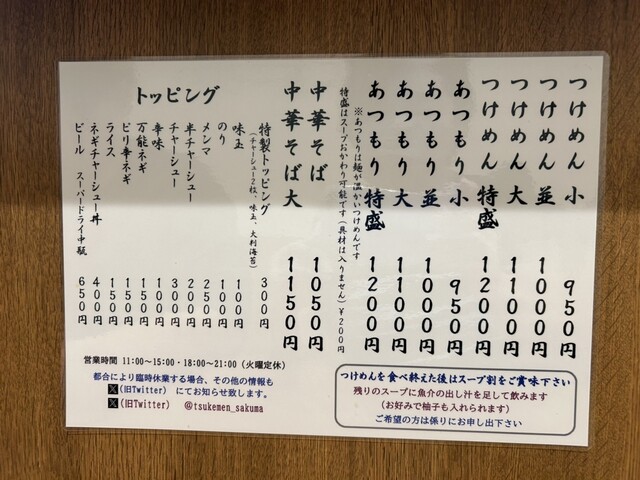 つけめん 小 950円
つけめん 並 1000円
つけめん 大 1100円
つけめん 特盛 1200円
あつもり 小 950円
あつもり 並 1000円
あつもり 大 1100円
あつもり 特盛 1200円
※あつもりは麺が温かいつけめんです
特盛はスープおかわり可能です(具材は入りません)¥200円
中華そば 1050円
中華そば 大 1150円
トッピング
特製トッピング 300円
(チャーシュー2枚、味玉、大判海苔)
味玉 100円
のり 100円
メンマ 250円
半チャーシュー 200円
チャーシュー 300円
辛味 100円
万能ネギ 150円
ピリ辛ネギ 150円
ライス 150円
ネギチャーシュー丼 400円
ビール スーパードライ中瓶 650円
営業時間 11:00〜15:00・18:00〜21:00(火曜定休)
都合により臨時休業する場合、その他の情報も
X(旧Twitter) にてお知らせ致します。
X(旧Twitter) @tsukemen_sakuma
つけめんを食べ終えた後はスープ割をご賞味下さい
残りのスープに魚介の出し汁を足して飲みます
(お好みで柚子も入れられます)
ご希望の方は係りにお申し出下さい